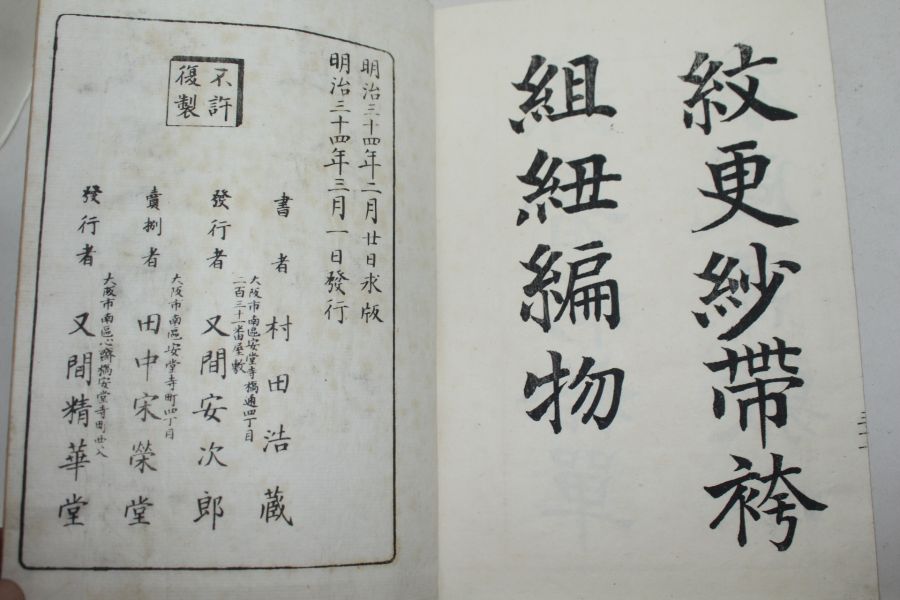 紋更紗帶袴
組紐編物
三十一
明治三十四年二月廿日求版
明治三十四年三月一日發行
不許
復製
書者 村田浩蔵
大阪市南區安堂寺橋通四丁目
二百三十一番屋敷
發行者 又間安次郎
大阪市南區安堂寺町四丁目
賣捌者 田中宋榮堂
大阪市南區心齋橋安堂寺町西入
發行者 又間精華堂